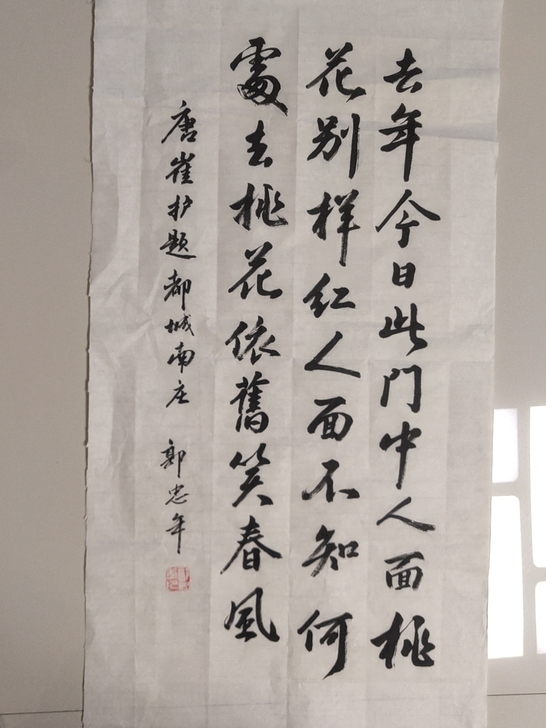 去年今日此门中人面桃
花别样红人面不知何
處去桃花依舊笑春風
唐崔护题都城南庄 郭忠年